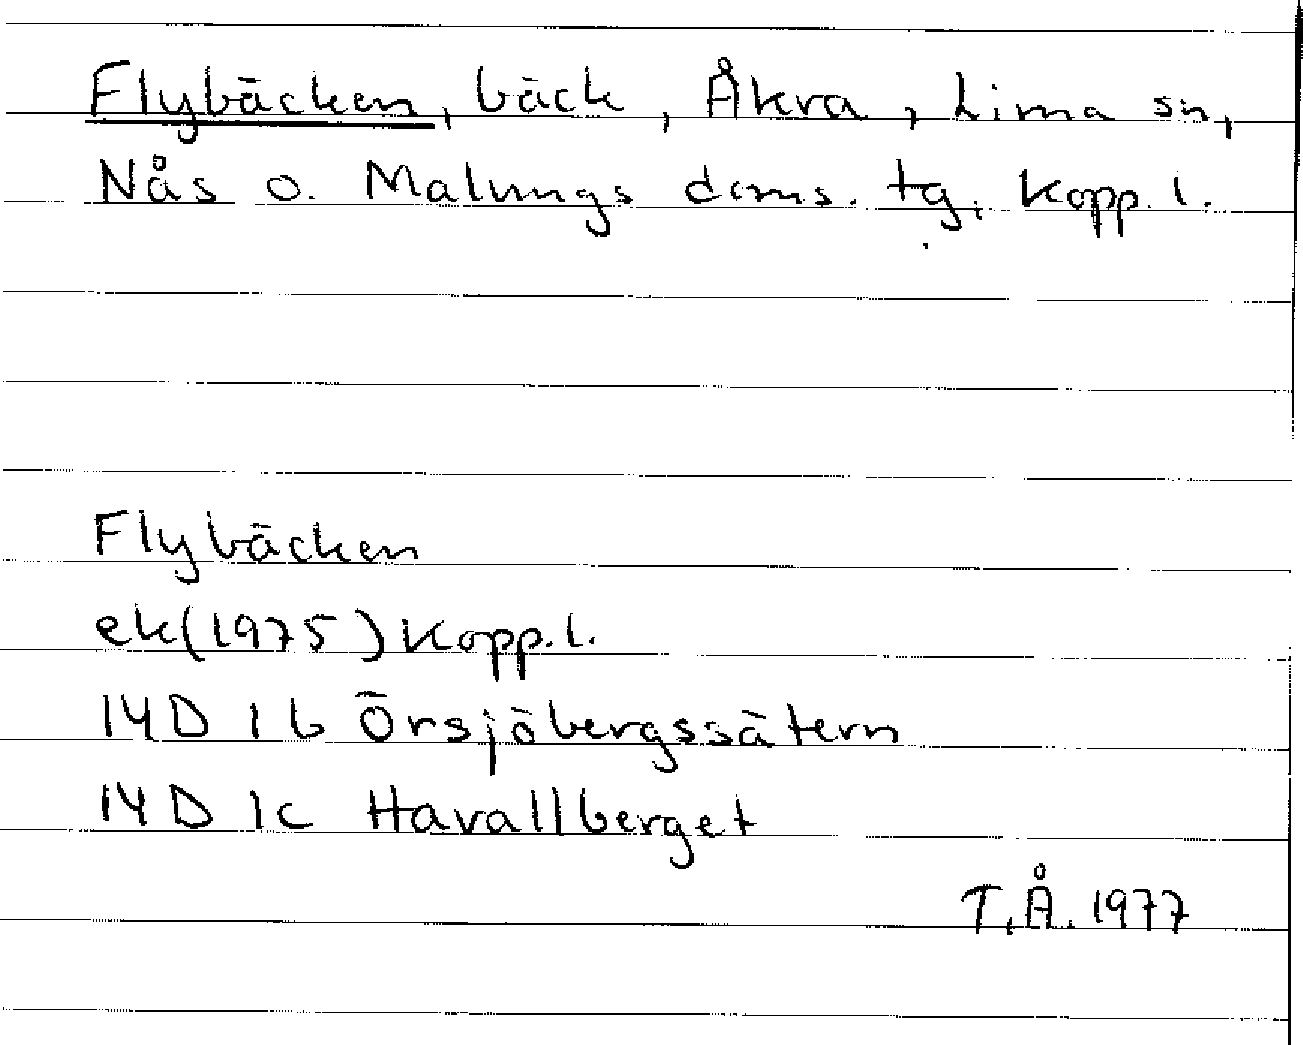 Flybäcken, bäck, Åkra, Lima sn,
Nås o. Malungs doms. tg, Kopp. l.
Flybäcken
ek(1975) Kopp. l.
14D 1b Örsjöbergssätern
14D 1c Havallberget
T.Å. 1977